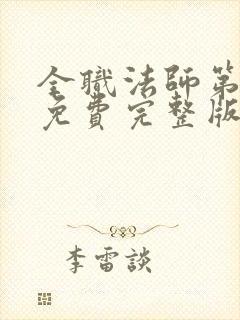 全職法師第
免費完整版
李雷談